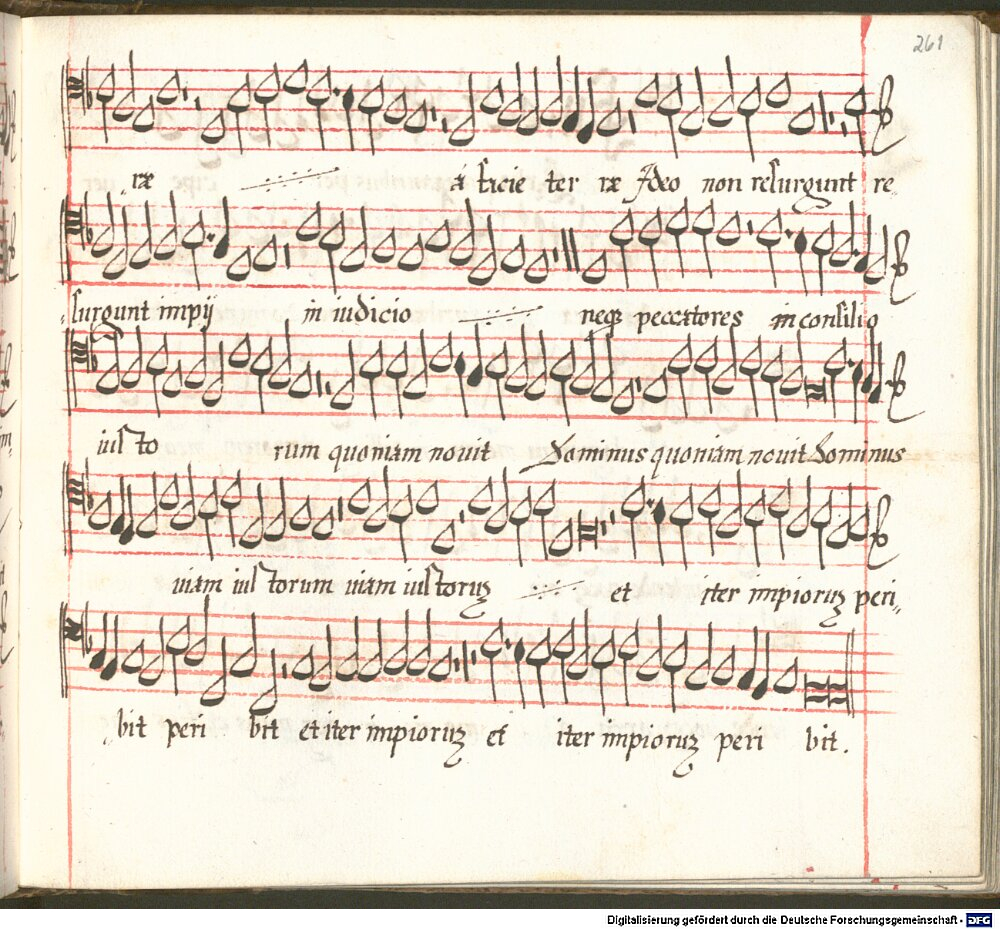 261
ræ a facie ter ræ Ideo non resurgunt re-
surgunt impij in iudicio neq peccatores in consilio
iusto rum quoniam novit Dominus quoniam novit Dominus
viam iustorum viam iustorum et iter impiorum peri-
bit peri bit et iter impiorum et iter impiorum peri bit.
Digitalisierung gefördert durch die Deutsche Forschungsgemeinschaft - DFG